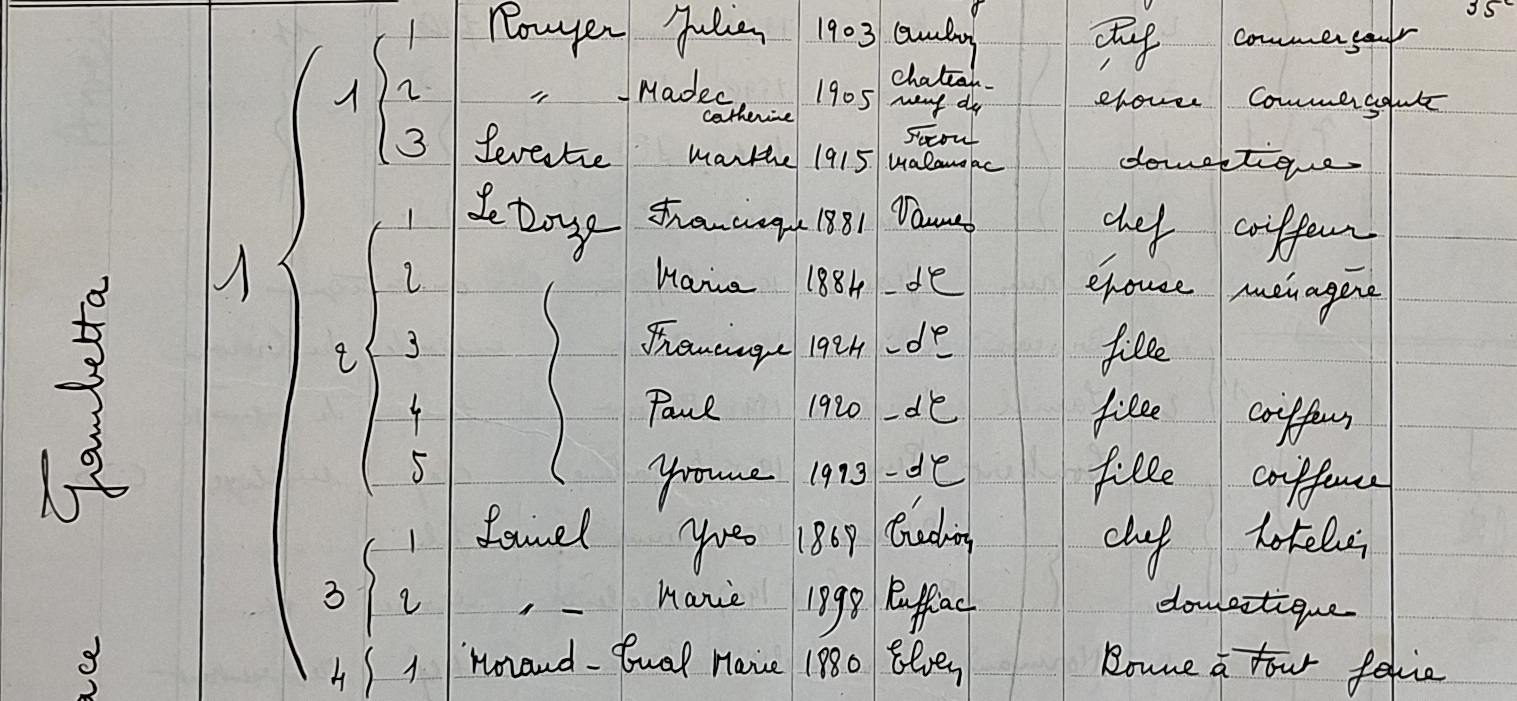 35
1 Rouyer Julien 1903 Ambon chef commerçant
1 2 〃 - Madec 1905 chateau- épouse commerçante
catherine neuf du
Faou
3 Levestre Marthe 1915 Malansac domestique
1 Le Dorze Francisque 1881 Vannes chef coiffeur
1 2 Maria 1884 - d° épouse ménagère
2 3 Francisque 1924 - d° fille
4 Paul 1920 - d° fille coiffeur
5 Yvonne 1923 - d° fille coiffeuse
1 Lainel Yves 1869 Trédion chef hotelier
3 2 〃 - Marie 1898 Ruffiac domestique
4 1 Moraud - Tual Marie 1880 Elven Bonne à Tout faire
Gambetta
ace